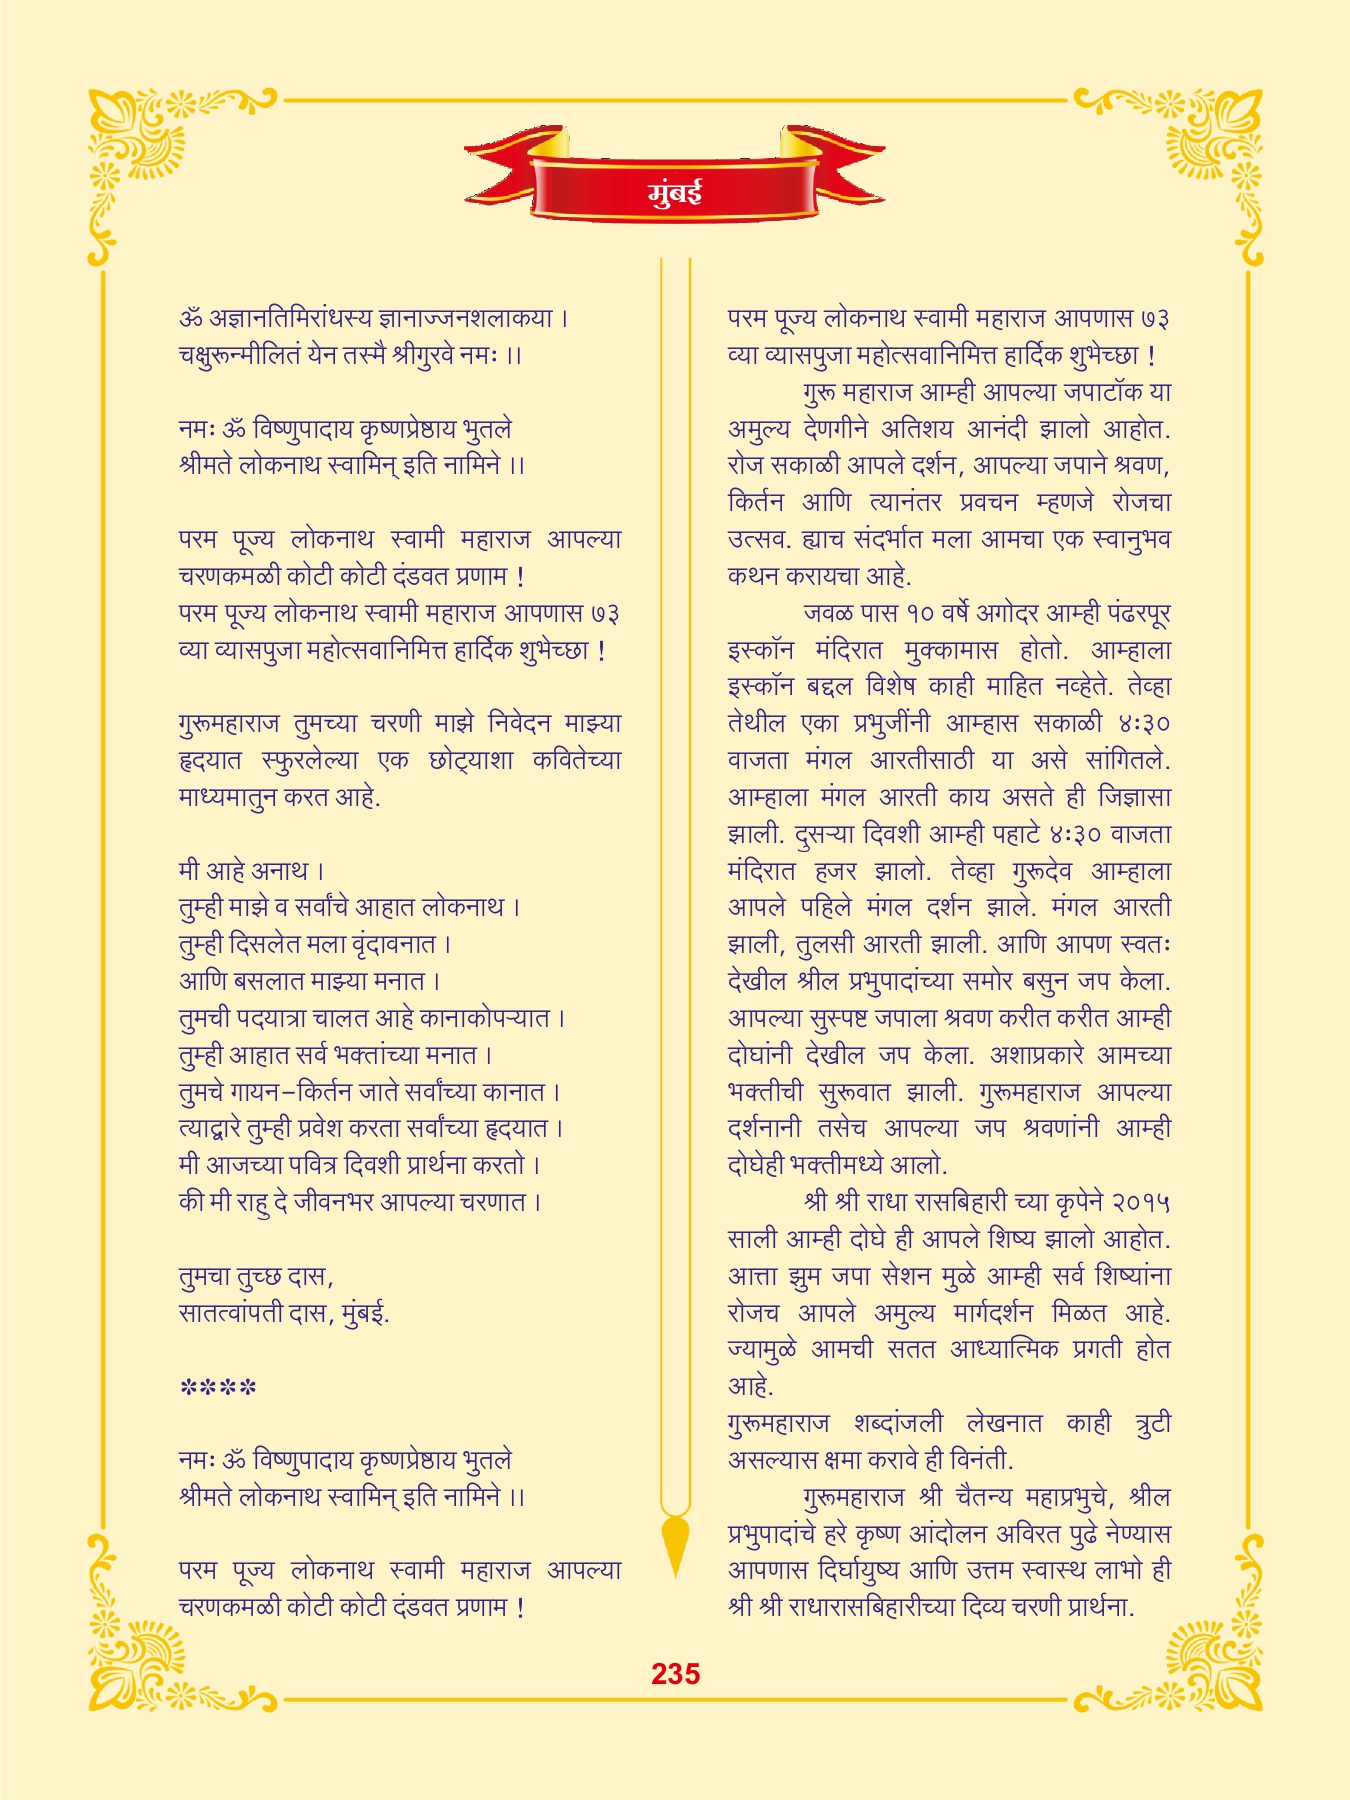 मुंबई
ॐ अज्ञानतिमिरांधस्य ज्ञानाज्जनशलाकया ।
चक्षुरून्मीलितं येन तस्मै श्रीगुरवे नमः ।।
नमः ॐ विष्णुपादाय कृष्णप्रेष्ठाय भुतले
श्रीमते लोकनाथ स्वामिन् इति नामिने ।।
परम पूज्य लोकनाथ स्वामी महाराज आपल्या
चरणकमळी कोटी कोटी दंडवत प्रणाम !
परम पूज्य लोकनाथ स्वामी महाराज आपणास ७३
व्या व्यासपुजा महोत्सवानिमित्त हार्दिक शुभेच्छा !
गुरूमहाराज तुमच्या चरणी माझे निवेदन माझ्या
हृदयात स्फुरलेल्या एक छोट्याशा कवितेच्या
माध्यमातुन करत आहे.
मी आहे अनाथ ।
तुम्ही माझे व सर्वांचे आहात लोकनाथ ।
तुम्ही दिसलेत मला वृंदावनात ।
आणि बसलात माझ्या मनात ।
तुमची पदयात्रा चालत आहे कानाकोपऱ्यात ।
तुम्ही आहात सर्व भक्तांच्या मनात ।
तुमचे गायन-किर्तन जाते सर्वांच्या कानात ।
त्याद्वारे तुम्ही प्रवेश करता सर्वांच्या हृदयात ।
मी आजच्या पवित्र दिवशी प्रार्थना करतो ।
की मी राहु दे जीवनभर आपल्या चरणात ।
तुमचा तुच्छ दास,
सातत्वांपती दास, मुंबई.
****
नमः ॐ विष्णुपादाय कृष्णप्रेष्ठाय भुतले
श्रीमते लोकनाथ स्वामिन् इति नामिने ।।
परम पूज्य लोकनाथ स्वामी महाराज आपल्या
चरणकमळी कोटी कोटी दंडवत प्रणाम !
परम पूज्य लोकनाथ स्वामी महाराज आपणास ७३
व्या व्यासपुजा महोत्सवानिमित्त हार्दिक शुभेच्छा !
गुरू महाराज आम्ही आपल्या जपाटॉक या
अमुल्य देणगीने अतिशय आनंदी झालो आहोत.
रोज सकाळी आपले दर्शन, आपल्या जपाने श्रवण,
किर्तन आणि त्यानंतर प्रवचन म्हणजे रोजचा
उत्सव. ह्याच संदर्भात मला आमचा एक स्वानुभव
कथन करायचा आहे.
जवळ पास १० वर्षे अगोदर आम्ही पंढरपूर
इस्कॉन मंदिरात मुक्कामास होतो. आम्हाला
इस्कॉन बद्दल विशेष काही माहित नव्हेते. तेव्हा
तेथील एका प्रभुजींनी आम्हास सकाळी ४:३०
वाजता मंगल आरतीसाठी या असे सांगितले.
आम्हाला मंगल आरती काय असते ही जिज्ञासा
झाली. दुसऱ्या दिवशी आम्ही पहाटे ४:३० वाजता
मंदिरात हजर झालो. तेव्हा गुरूदेव आम्हाला
आपले पहिले मंगल दर्शन झाले. मंगल आरती
झाली, तुलसी आरती झाली. आणि आपण स्वतः
देखील श्रील प्रभुपादांच्या समोर बसुन जप केला.
आपल्या सुस्पष्ट जपाला श्रवण करीत करीत आम्ही
दोघांनी देखील जप केला. अशाप्रकारे आमच्या
भक्तीची सुरूवात झाली. गुरूमहाराज आपल्या
दर्शनानी तसेच आपल्या जप श्रवणांनी आम्ही
दोघेही भक्तीमध्ये आलो.
श्री श्री राधा रासबिहारी च्या कृपेने २०१५
साली आम्ही दोघे ही आपले शिष्य झालो आहोत.
आत्ता झुम जपा सेशन मुळे आम्ही सर्व शिष्यांना
रोजच आपले अमुल्य मार्गदर्शन मिळत आहे.
ज्यामुळे आमची सतत आध्यात्मिक प्रगती होत
आहे.
गुरूमहाराज शब्दांजली लेखनात काही त्रुटी
असल्यास क्षमा करावे ही विनंती.
गुरूमहाराज श्री चैतन्य महाप्रभुचे, श्रील
प्रभुपादांचे हरे कृष्ण आंदोलन अविरत पुढे नेण्यास
आपणास दिर्घायुष्य आणि उत्तम स्वास्थ लाभो ही
श्री श्री राधारासबिहारीच्या दिव्य चरणी प्रार्थना.
235